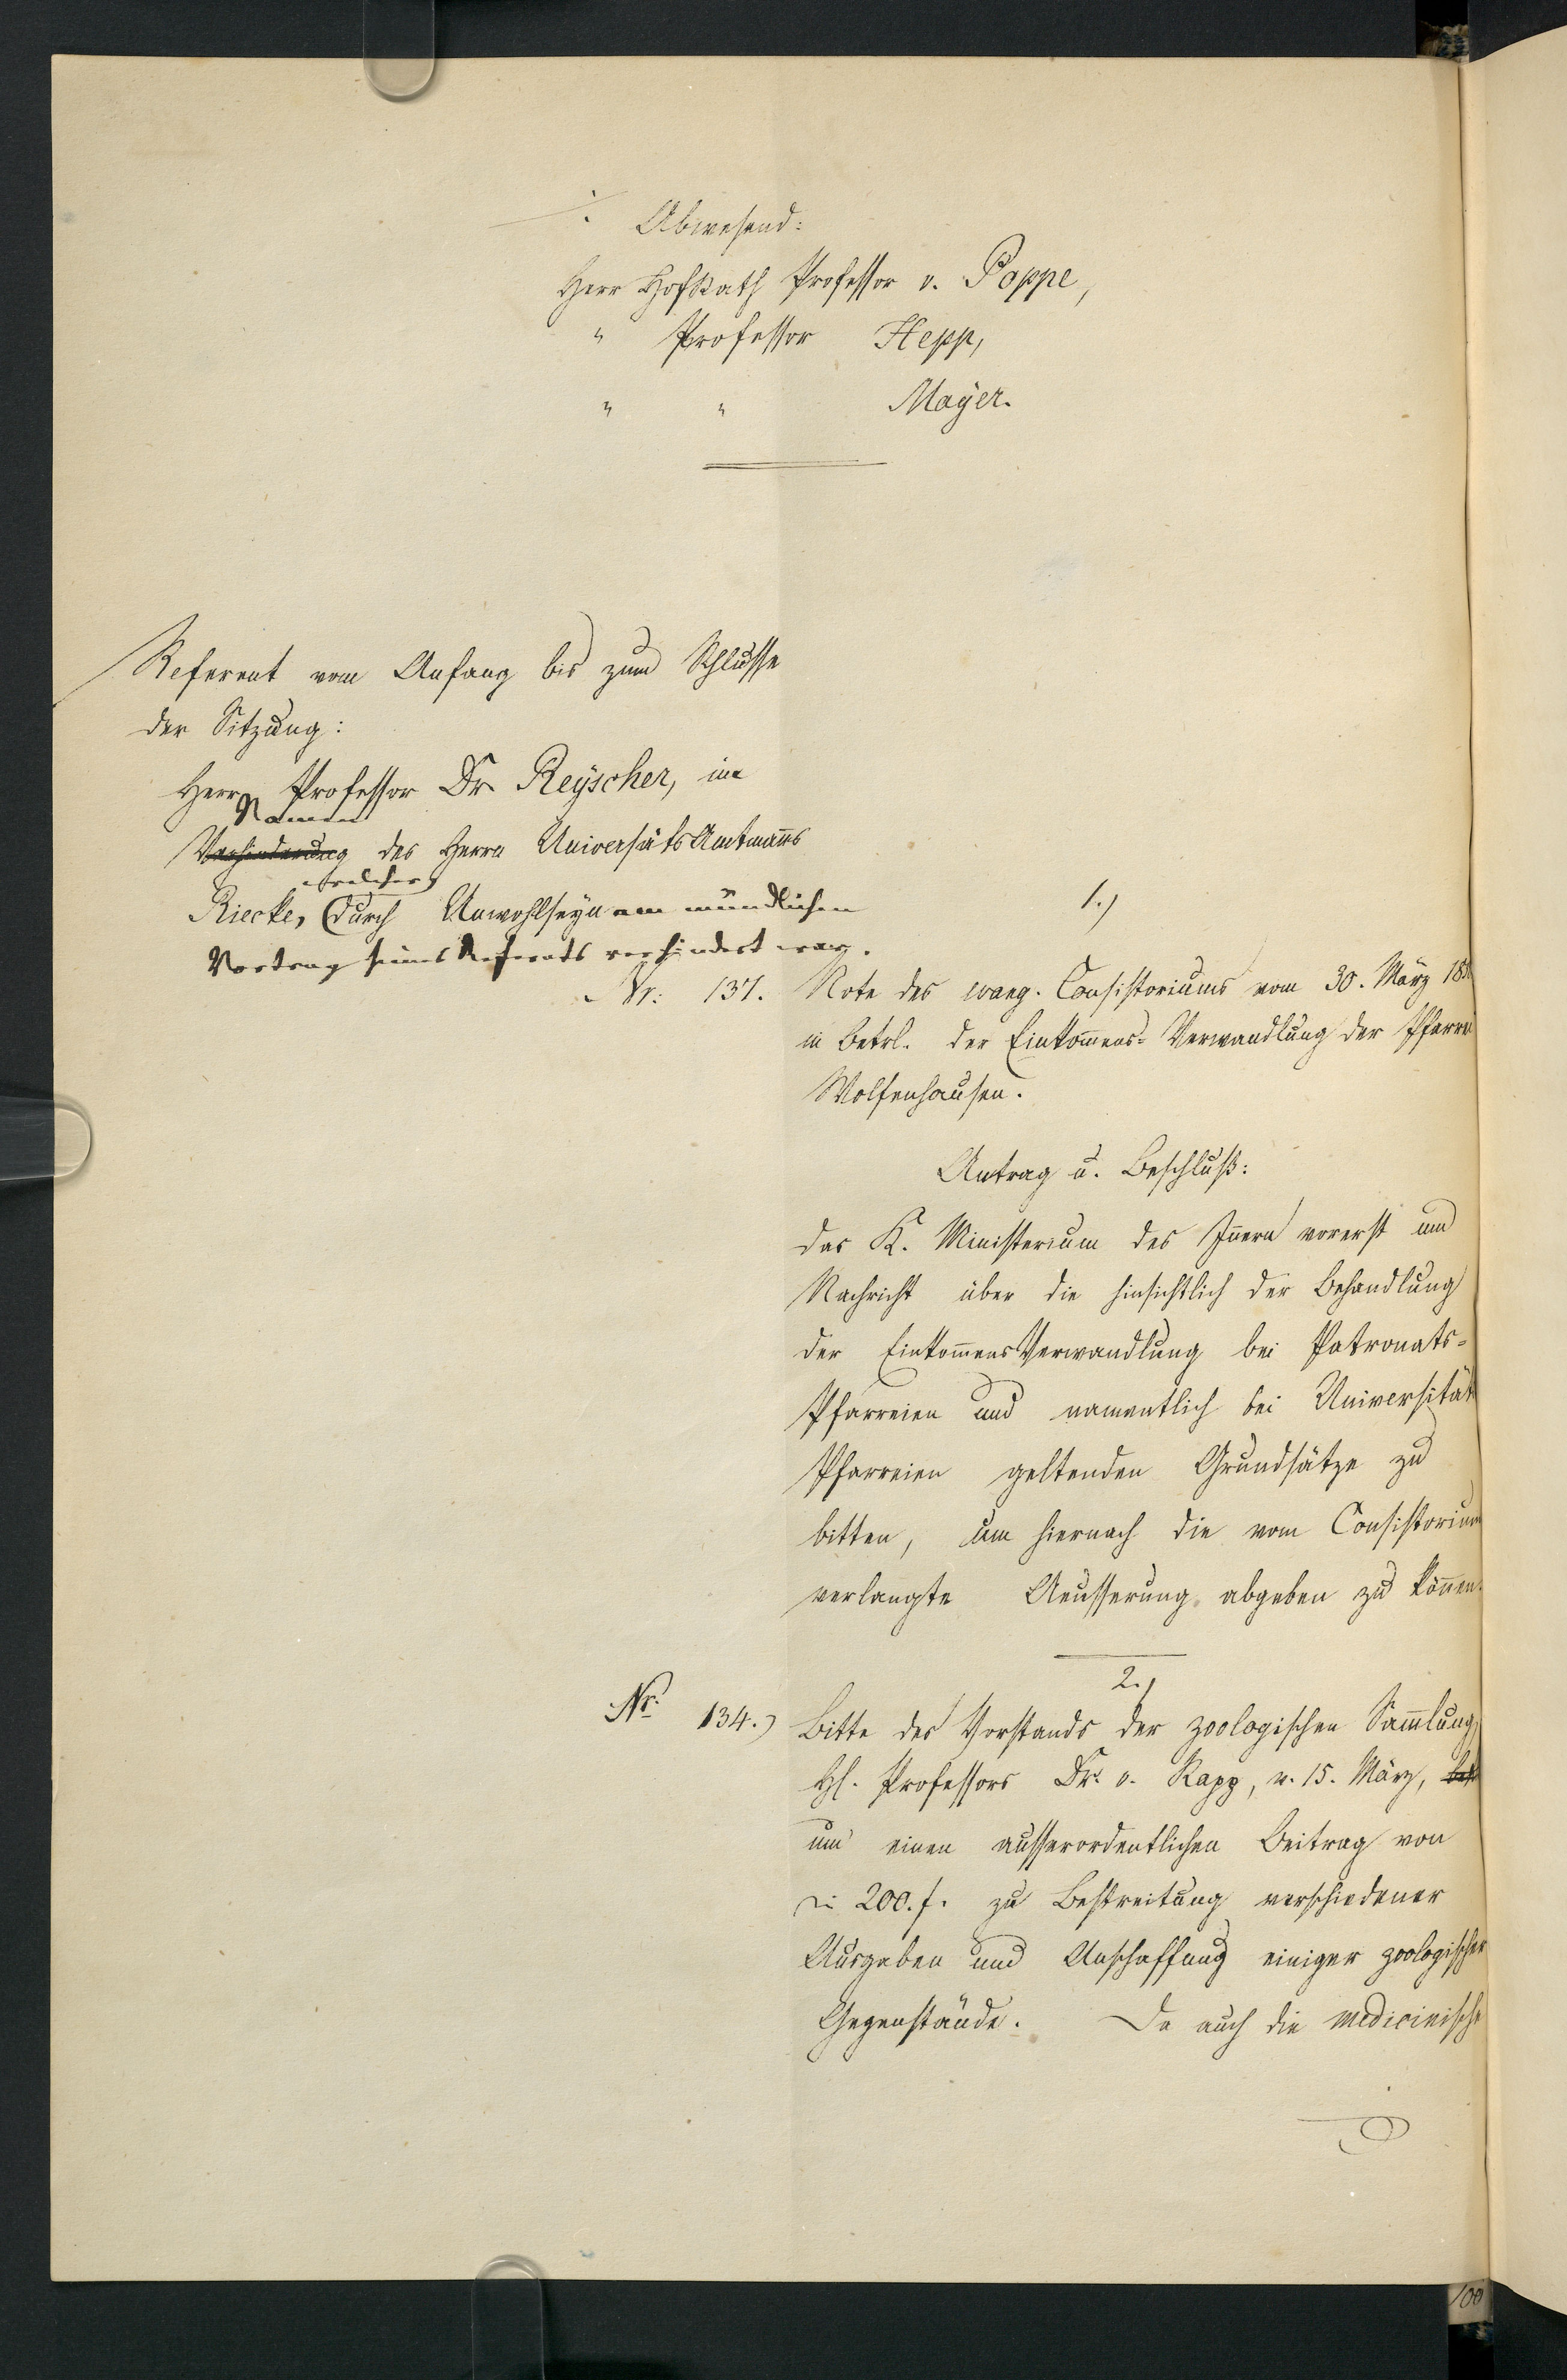 Abwesend:
Herr HofRath Professor v. Poppe,
" Professor Hepp,
" " Mayer.
Referent vom Anfang bis zum Schlusse
der Sitzung:
Herr Professor Dr. Reyscher, im
Namen
Verhinderung des Herrn UniversitätsAmtmanns
welcher
Riecke, durch Unwohlseyn am mündlichen
Vortrag seines Referats verhindert war.
1.)
Nr: 137. Note des evang. Consistoriums vom 30. März
in Betrl. der Einkom̄ens-Verwandlung der Pfarrei
Wolfenhausen.
Antrag u. Beschluß:
das K. Ministerium des Iñern vorerst um
Nachricht über die hinsichtlich der Behandlung
der Einkom̄ensVerwandlung bei Patronats-
Pfarreien und namentlich bei Universität
Pfarreien geltenden Grundsätze zu
bitten, um hiernach die vom Consistorium
verlangte Aeusserung abgeben zu köñen.
2.)
Nr. 134.) Bitte des Vorstands der zoologischen Sam̄lung,
H. Professors Dr. v. Rapp, v. 15. März,
um einen ausserordentlichen Beitrag von
200. f. zu Bestreitung verschiedener
Ausgaben und Anschaffung einiger zoologischer
Gegenstände. Da auch die medicinische
100